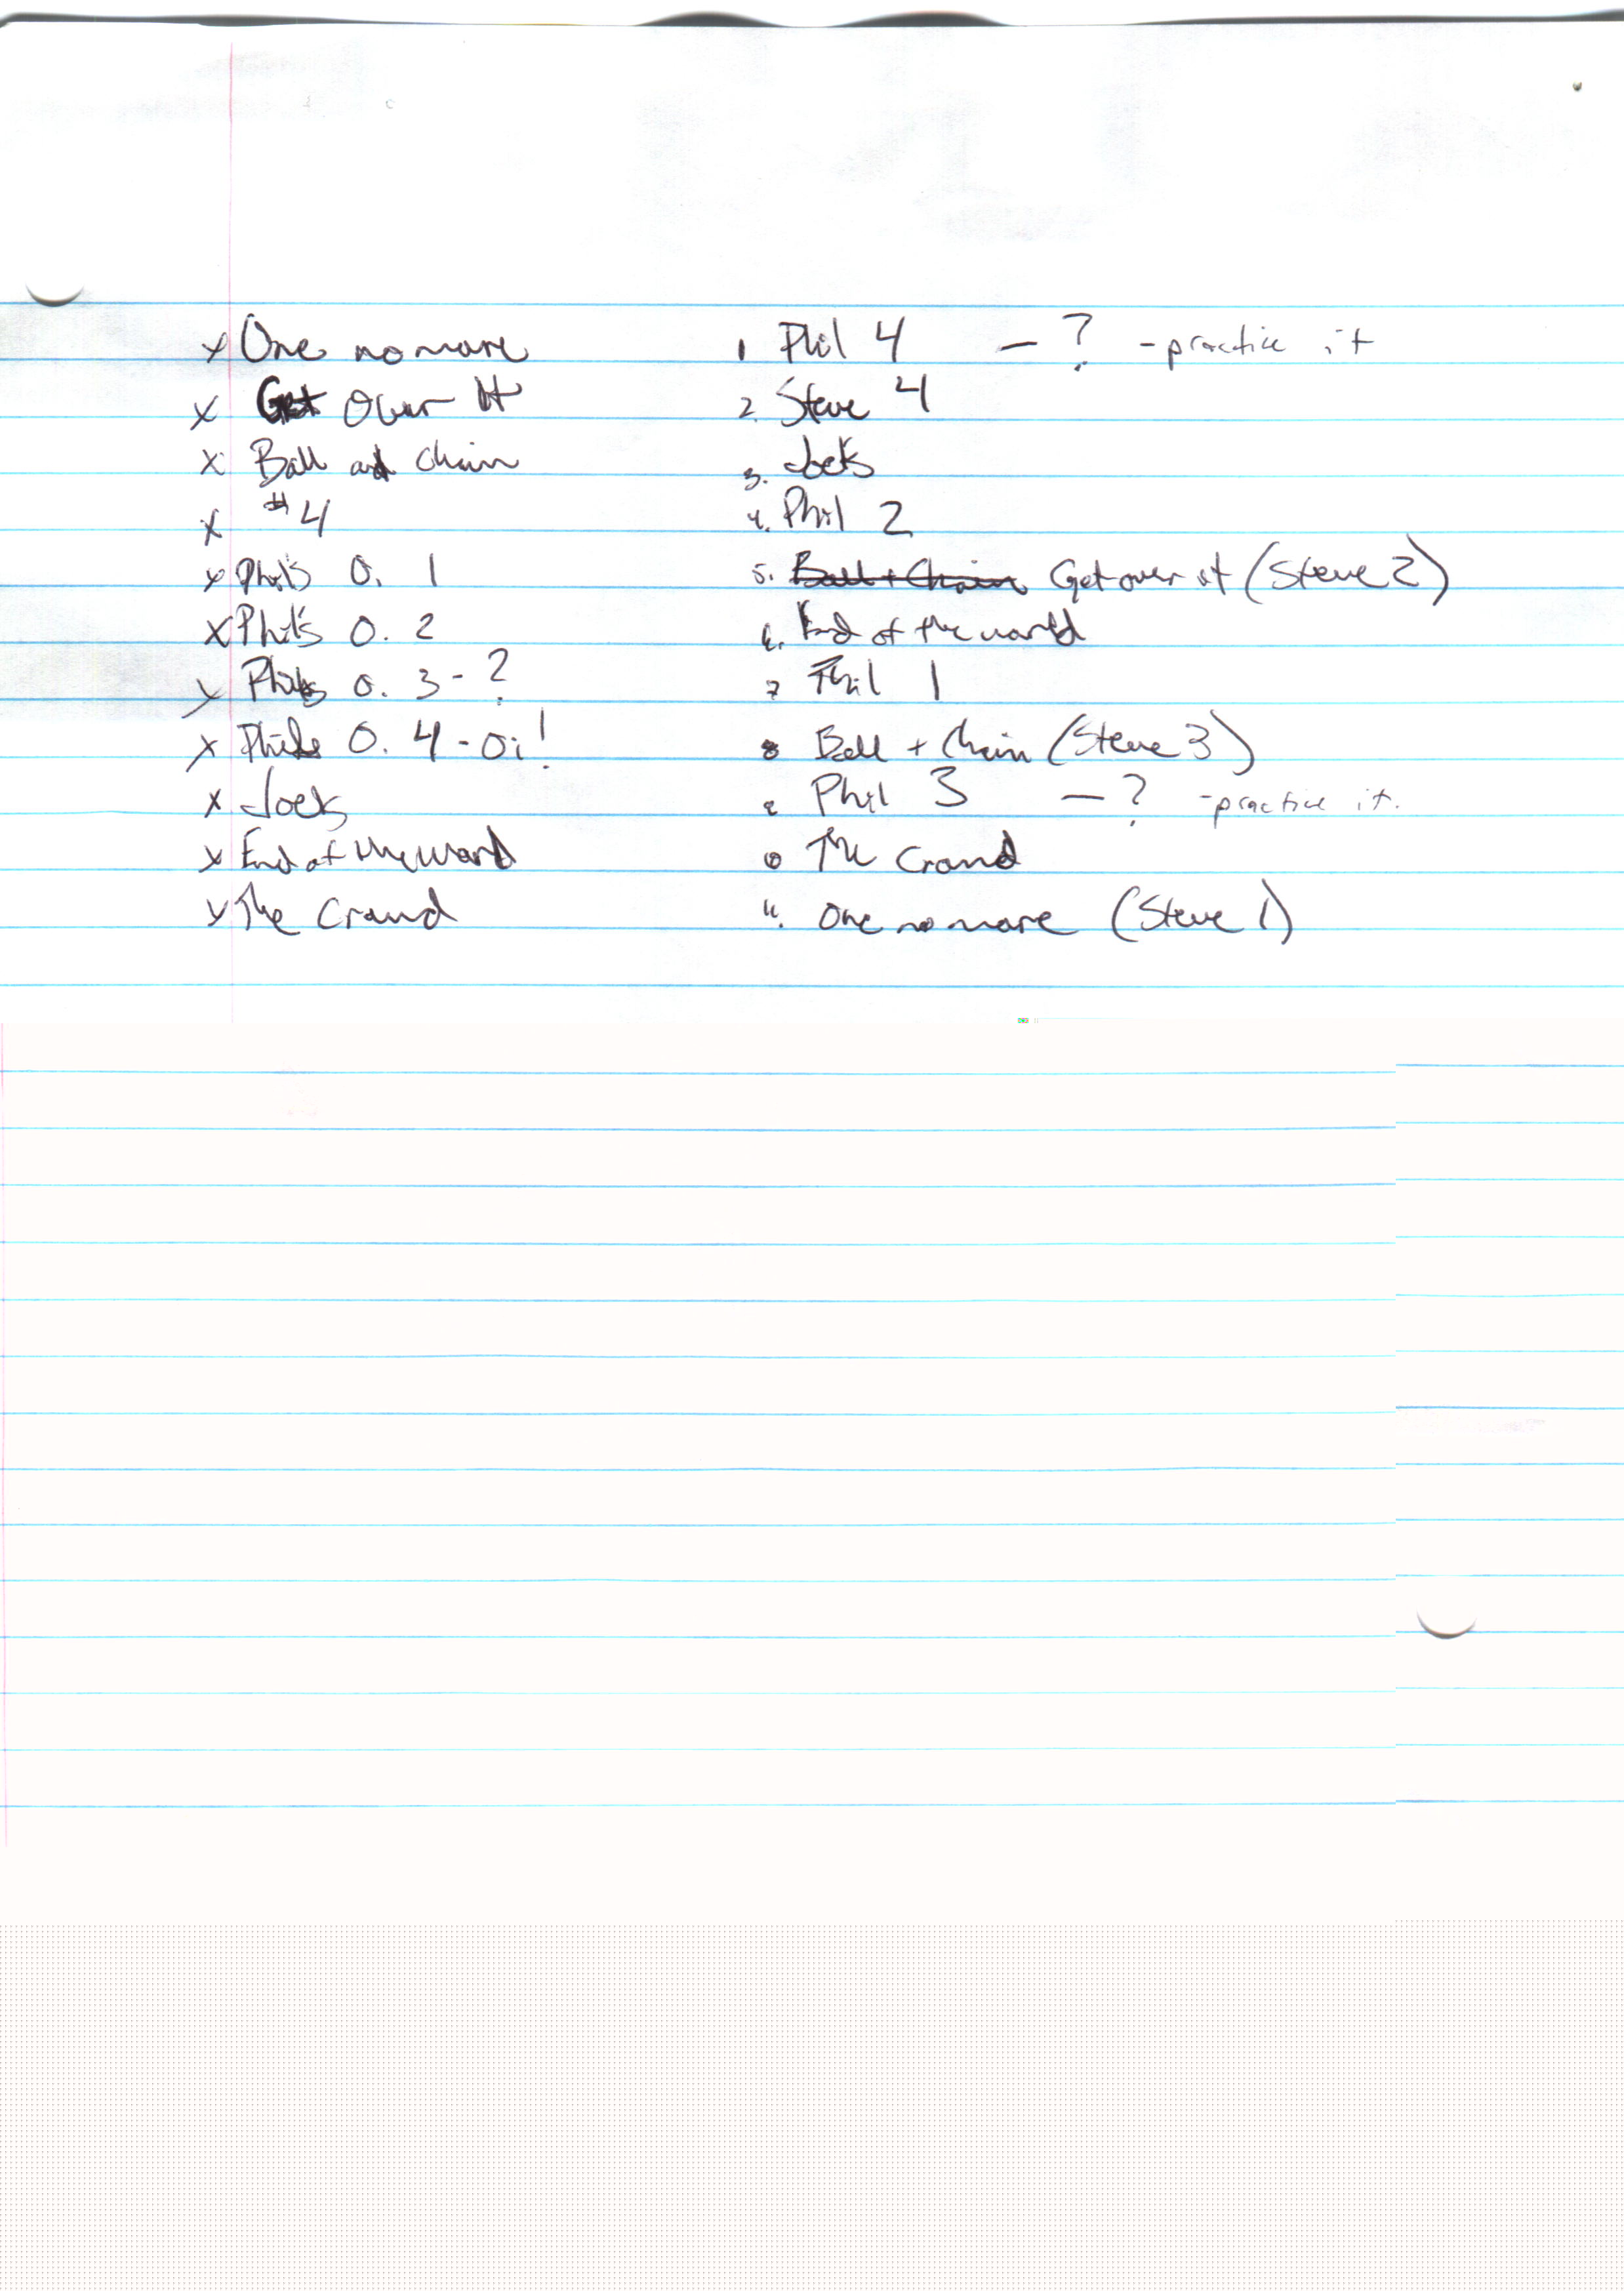 x One no more
x Get Over It
x Ball and Chain
x #4
x Phil's O. 1
x Phil's O. 2
x Phil's O. 3 - ?
x Phil's O. 4 - Oi!
x Jocks
x End of the World
x The Crowd
1 Phil 4 — ? - practice it
2. Steve 4
3. Jocks
4. Phil 2
5. Ball + Chain Get over it (Steve 2)
6. End of the world
7 Phil 1
8 Ball + Chain (Steve 3)
9 Phil 3 — ? - practice it.
10 The Crowd
11. One no more (Steve 1)